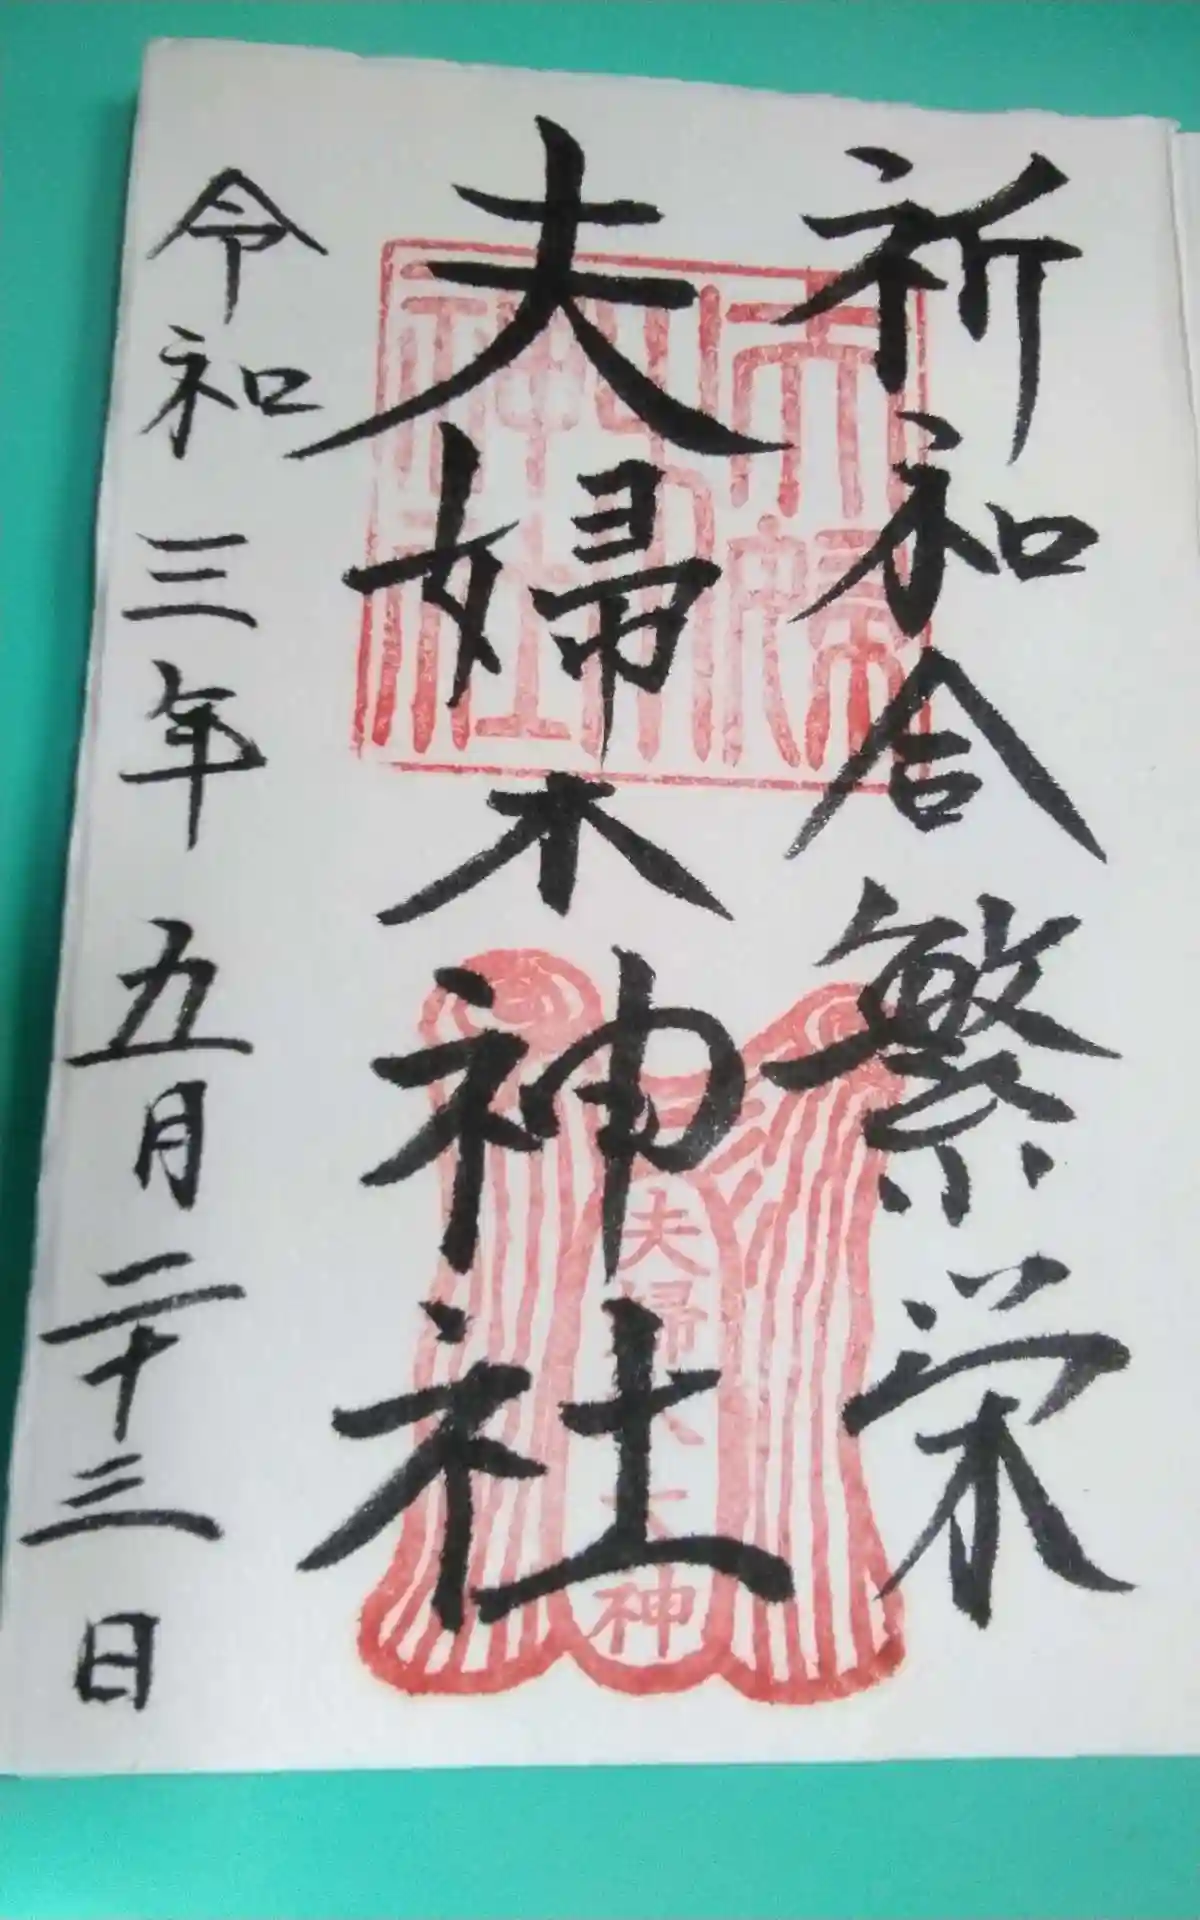 祈和合繁栄
夫婦木神社
令和三年五月二十三日
夫婦木神社
夫婦木大神